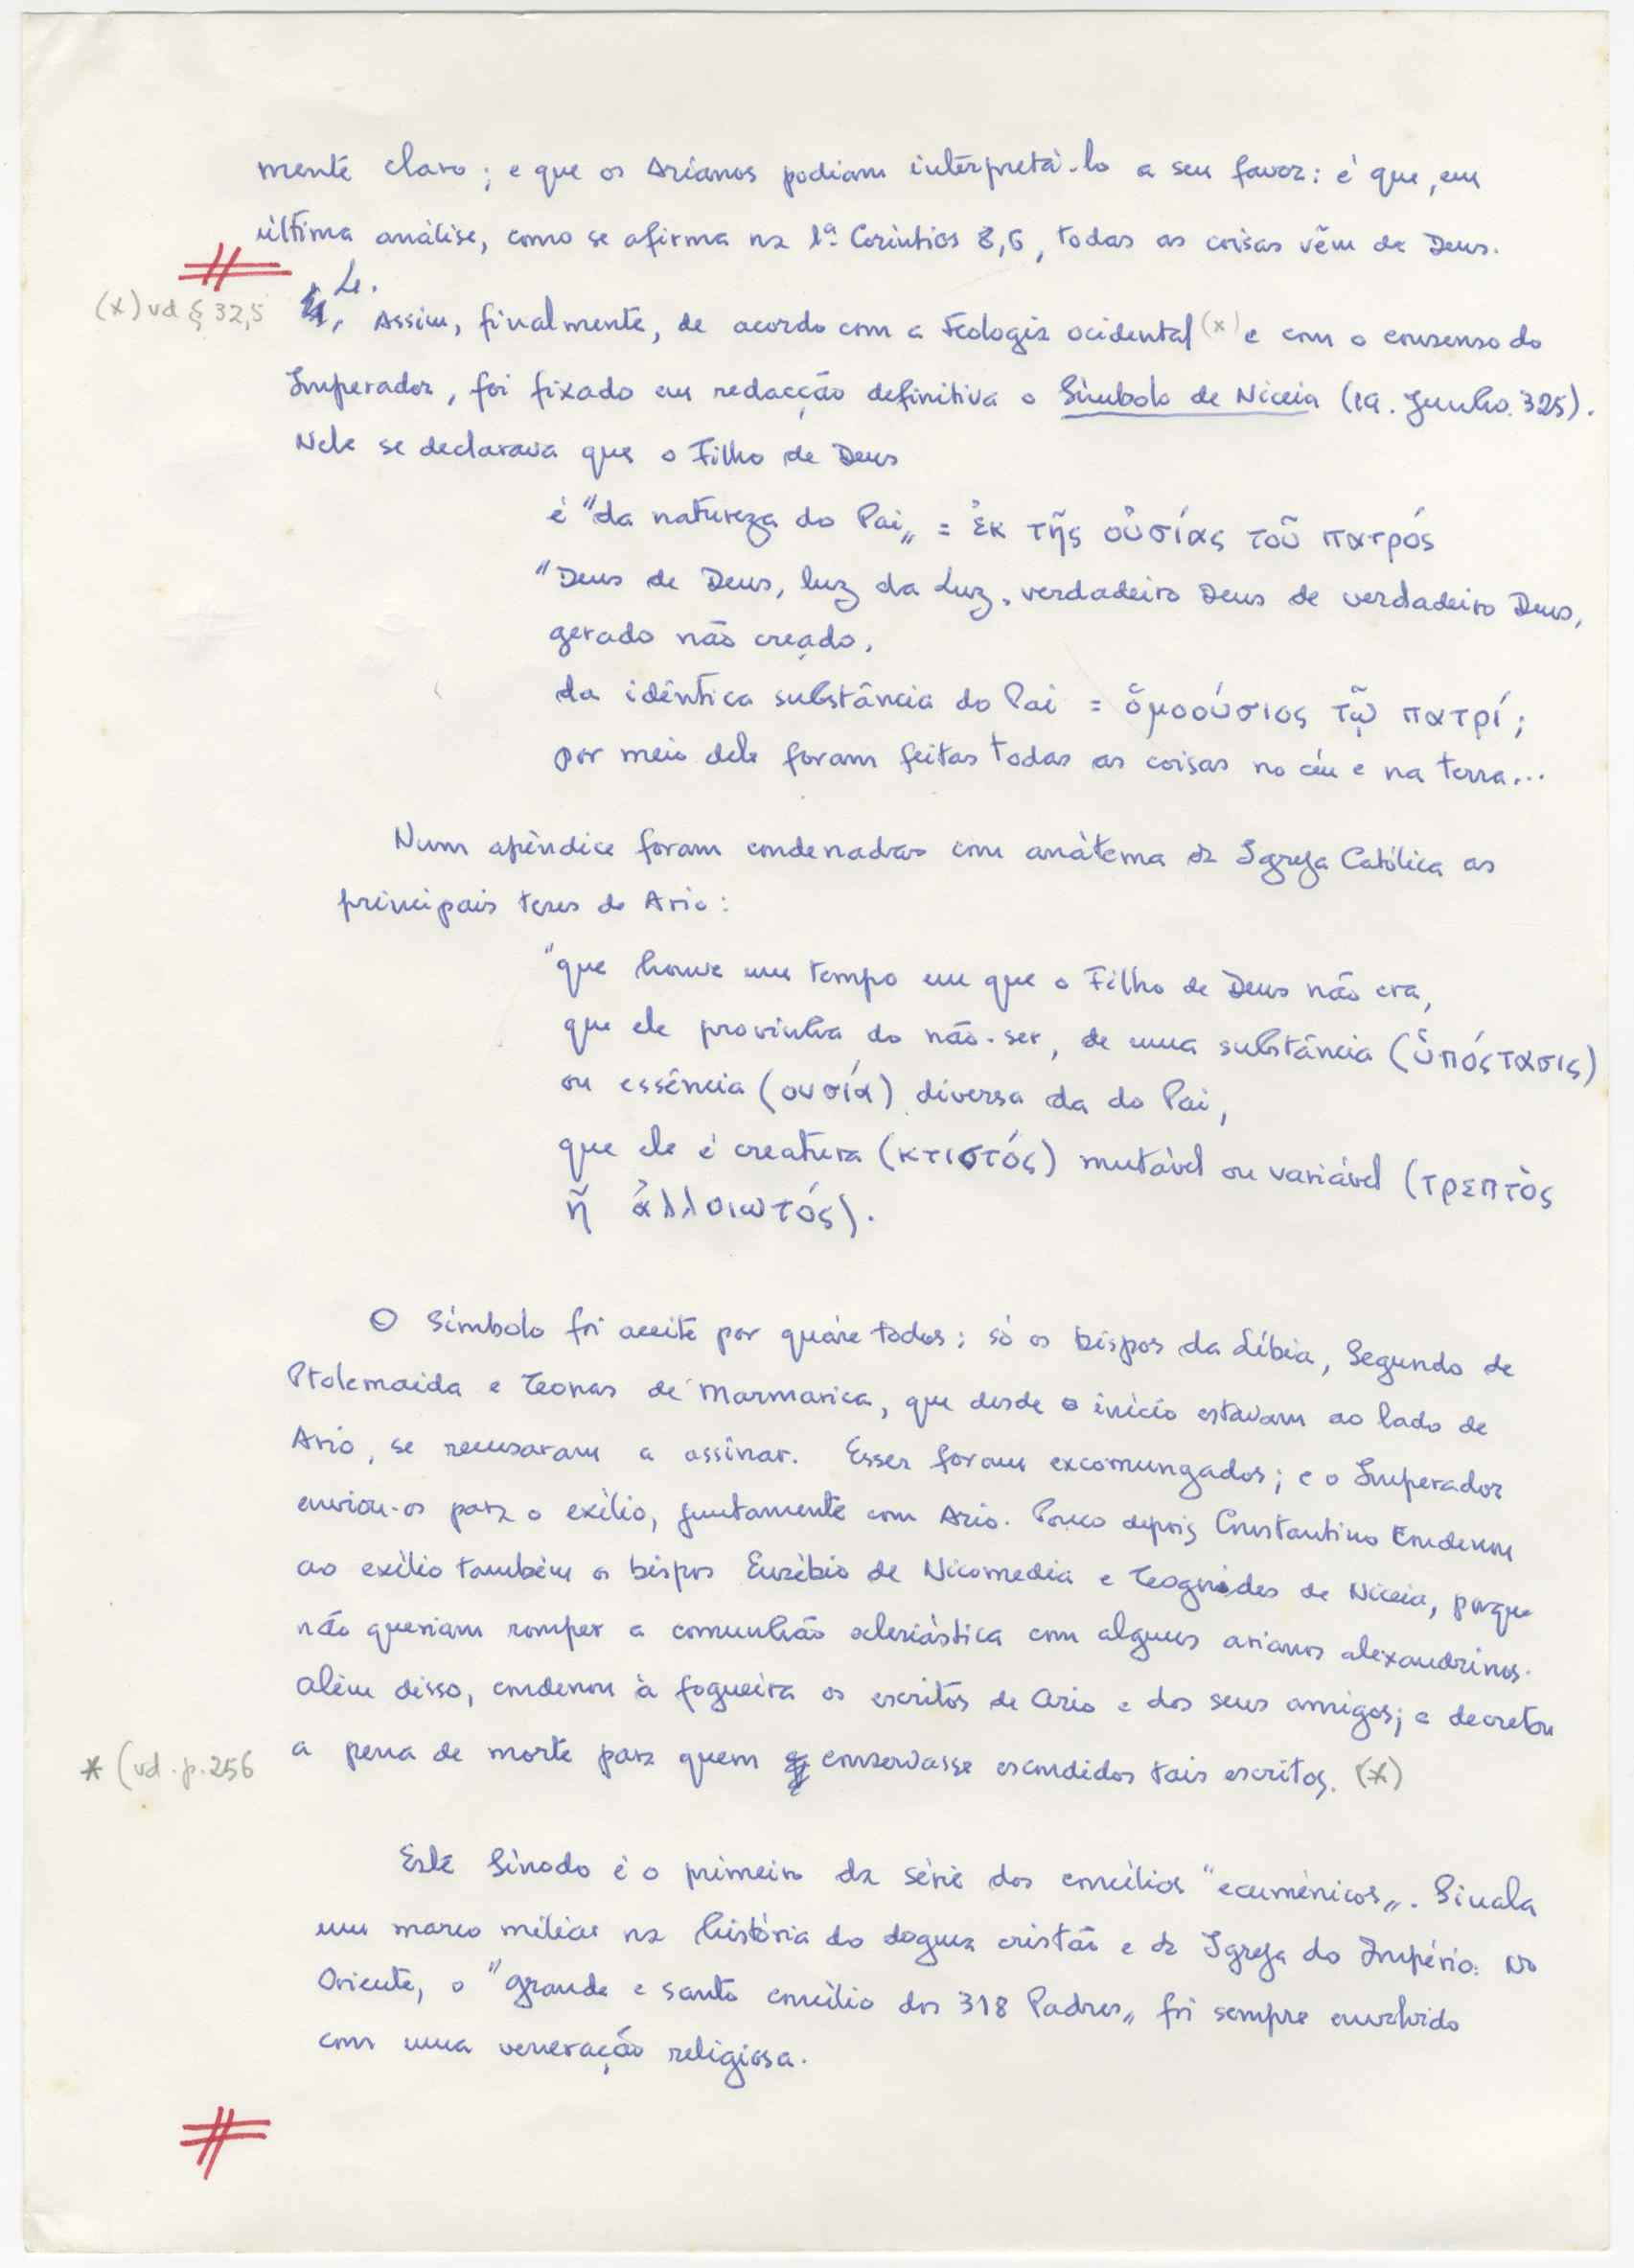 mente claro; e que os Arianos podiam interpretá-lo a seu favor: é que, em
última análise, como se afirma na 1ª Coríntios 8,6, todas as coisas vêm de Deus.
#
(x) vd § 32,5
4. Assim, finalmente, de acordo com a Teologia ocidental (x) e com o consenso do
Imperador, foi fixado em redacção definitiva o Símbolo de Niceia (19. Junho. 325).
Nele se declarava que o Filho de Deus
é "da natureza do Pai„ = ἐκ τῆς οὐσίας τοῦ πατρός
"Deus de Deus, luz da Luz, verdadeiro Deus de verdadeiro Deus,
gerado não creado,
da idêntica substância do Pai = ὁμοούσιος τῷ πατρί;
por meio dele foram feitas todas as coisas no céu e na terra...
Num apêndice foram condenadas com anátema da Igreja Católica as
principais teses de Ario:
"que houve um tempo em que o Filho de Deus não era,
que ele provinha do não-ser, de uma substância (ὑπόςτασις)
ou essência (ουσία) diversa da do Pai,
que ele é creatura (κτιστός) mutável ou variável (τρεπτὸς
ἢ ἀλλοιωτός).
O Símbolo foi aceite por quáse todos; só os bispos da Líbia, Segundo de
Ptolemaida e Teonas de Marmarica, que desde o início estavam ao lado de
Ario, se recusaram a assinar. Esses foram excomungados; e o Imperador
enviou-os para o exílio, juntamente com Ario. Pouco depois Constantino condenou
ao exílio também os bispos Eusébio de Nicomedia e Teognides de Niceia, porque
não queriam romper a comunhão eclesiástica com alguns arianos alexandrinos.
Além disso, condenou à fogueira os escritos de Ario e dos seus amigos; e decretou
a pena de morte para quem conservasse escondidos tais escritos. (*)
* (vd. p. 256
Este Sínodo é o primeiro da série dos concílios "ecuménicos„. Sinala
um marco miliar na história do dogma cristão e da Igreja do Império. No
Oriente, o "grande e santo concílio dos 318 Padres„ foi sempre envolvido
com uma veneração religiosa.
#